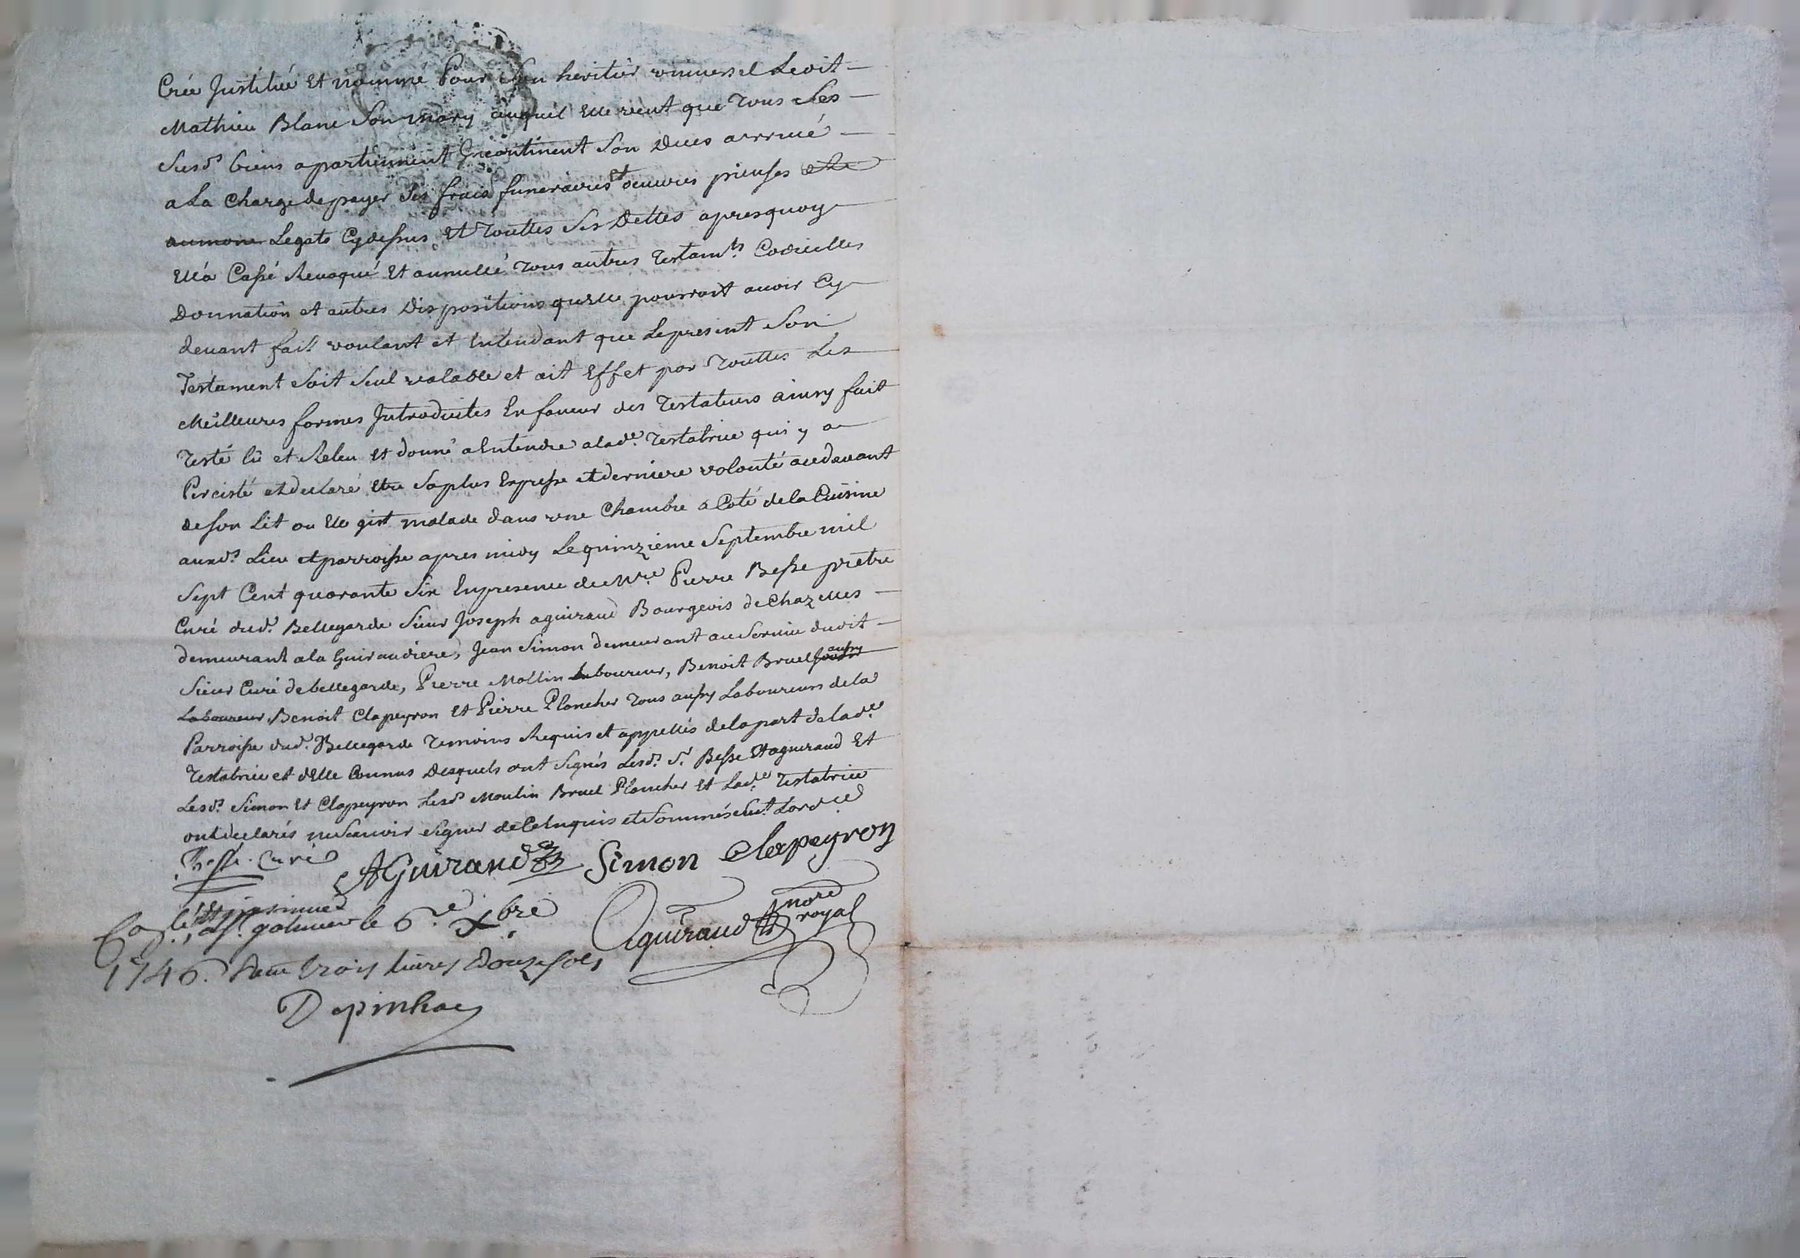 Créé Justitué Et nommé Pour Son heritier universel Ledit
Mathieu Blanc Son mary auquel Elle veut que Tous Ses
Susd.s biens apartiennent Incontinent Son Deces arrivé
a La Charge de payer Ses frais funeraires et oeuvres pieuses
aumone Legats Cydessus Et Touttes Ses Dettes apresquoy
Ella Cassé Revoqué Et annullé Tous autres Testam.ts Codicilles
Donnation et autres Dispositions quelle pourroit avoir Cy
devant fait voulant et Entendant que Lepresent Son
Testament Soit Seul valable et ait Effet par Touttes Les
Meilleures formes Introduites En faveur des Testateurs ainsy fait
Testé lû et Releu Et donné a Entendre a lad.e Testatrice qui y a
Percisté et declaré Etre Saplus Expresse et derniere volonté audavant
de son Lit ou Elle gist malade dans une Chambre a Coté de la Cuisine
auxd.s Lieu et parroisse apres midy Le quinzieme Septembre mil
Sept Cent quarante Six En presence de M.re Pierre Besse prêtre
Curé dud.t Bellegarde Sieur Joseph aguiraud Bourgeois de Chazelles
demeurant a la Guiraudiere, Jean Simon demeurant au Service dudit
Sieur Curé de bellegarde, Pierre Mollin Laboureur, Benoit Bruel aussy
Laboureur Benoit Clapeyron Et Pierre Plancher Tous aussy Laboureurs de la
Parroisse dud.t Bellegarde Temoins Requis et appellés de la part de lad.e
Testatrice et d'Elle Connus Desquels ont Signés Lesd.s S.r Besse Et aguiraud Et
Lesd.s Simon Et Clapeyron Lesd.s Moulin Bruel Plancher Et Lad.e Testatrice
ont declarés ne Scavoir Signer de Ce Enquis et Sommés
Besse Curé
AGuiraud Simon Clapeyron
insinué
a S.t galmier le 6.e Xbre
Aguiraud no.re royal
1746. trois livres douze sols
Depinhac